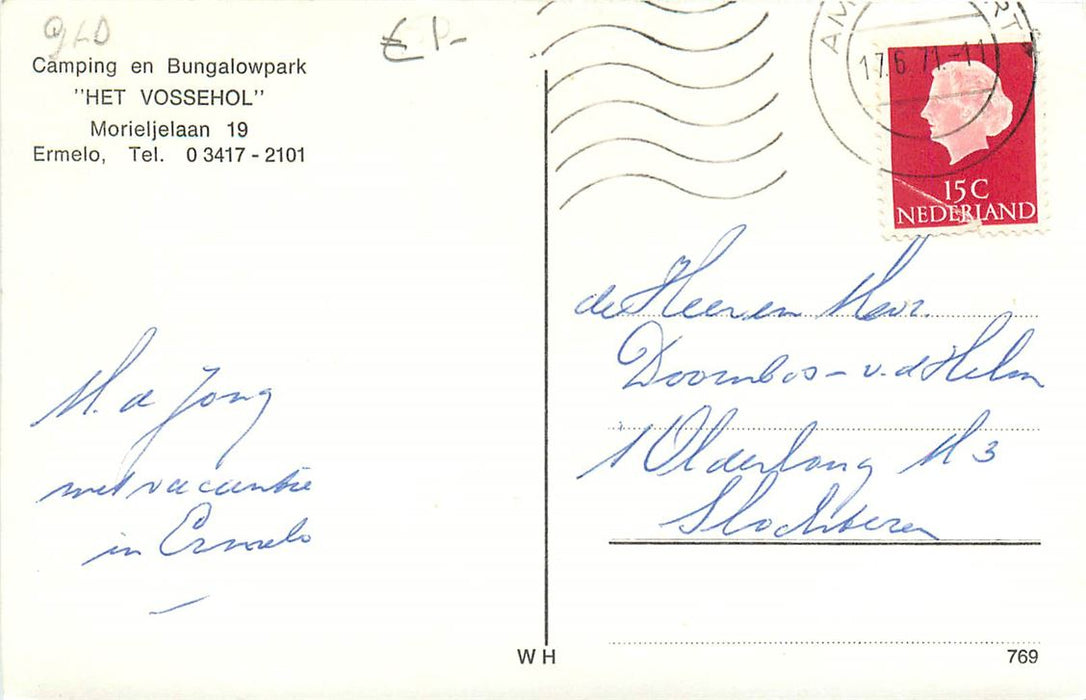 GLD
€ 1-
Camping en Bungalowpark
"HET VOSSEHOL"
Morieljelaan 19
Ermelo, Tel. 0 3417 - 2101
17.6.71.-11
15 C
NEDERLAND
de Heer en Mevr.
Doornbos - v. d. Helm
Olderlong H 3
Slochteren
M. de Jong
met vacantie
in Ermelo
W H
769